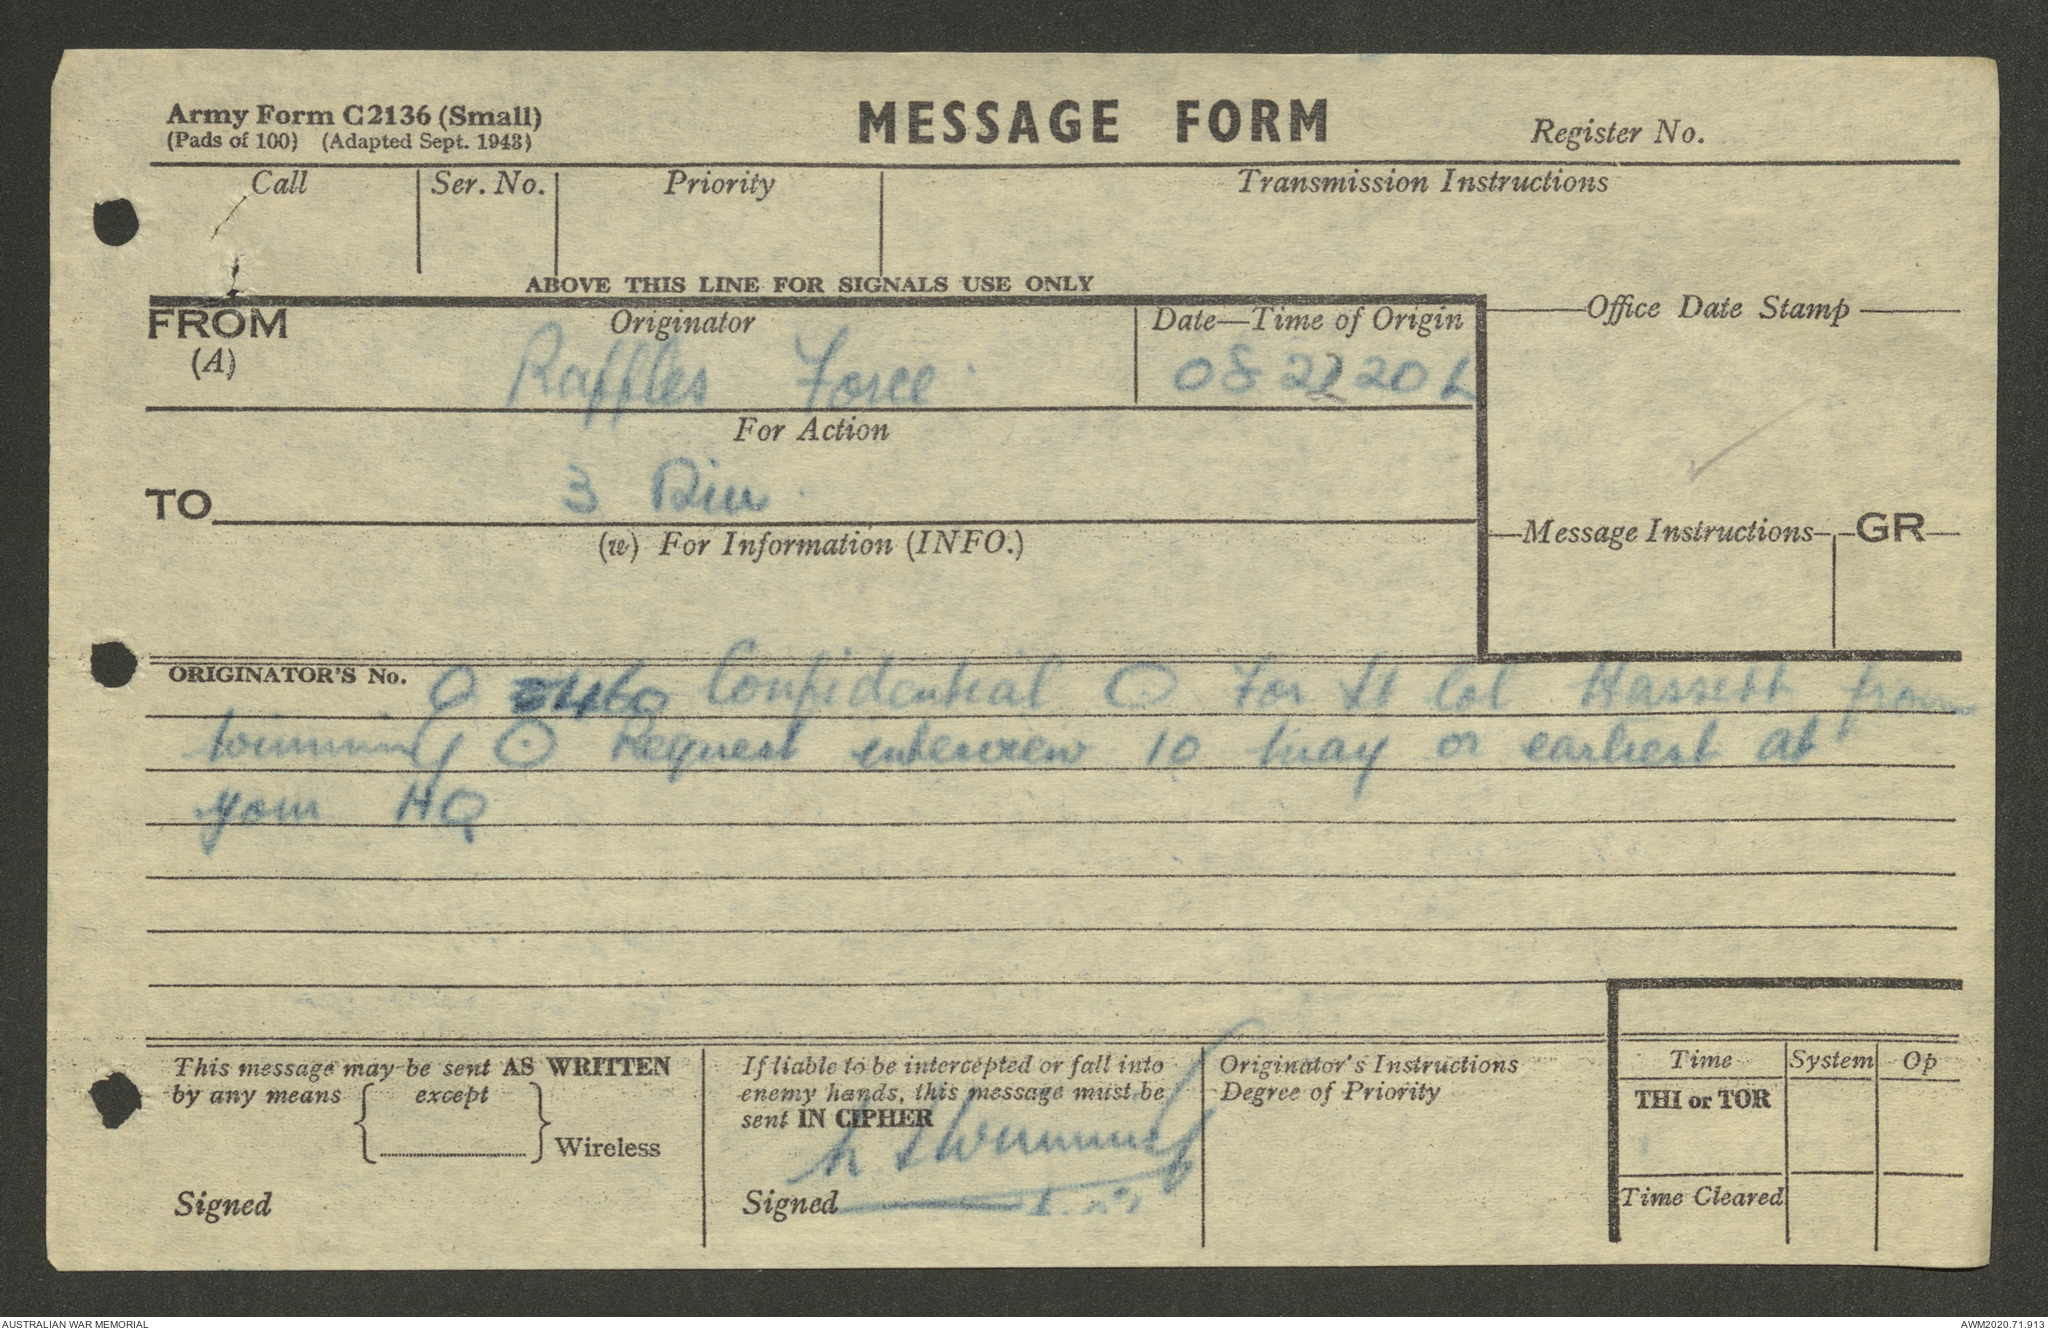 Army Form C2136 (Small)
(Pads of 100) (Adapted Sept. 1943)
MESSAGE FORM
Register No.
Call
Ser. No.
Priority
Transmission Instructions
ABOVE THIS LINE FOR SIGNALS USE ONLY
FROM
(A)
Originator
Raffles Force
Date—Time of Origin
082220 L
Office Date Stamp
For Action
TO
3 Div
(w) For Information (INFO.)
Message Instructions
GR
ORIGINATOR'S No. O Confidential O For Lt Col Hassett from
Wimning O Request interview 10 May or earliest at
your HQ
This message may be sent AS WRITTEN
by any means except
Wireless
Signed
If liable to be intercepted or fall into
enemy hands, this message must be
sent IN CIPHER
Signed
Originator's Instructions
Degree of Priority
Time
System
Op
THI or TOR
Time Cleared
AUSTRALIAN WAR MEMORIAL
AWM2020.71.913